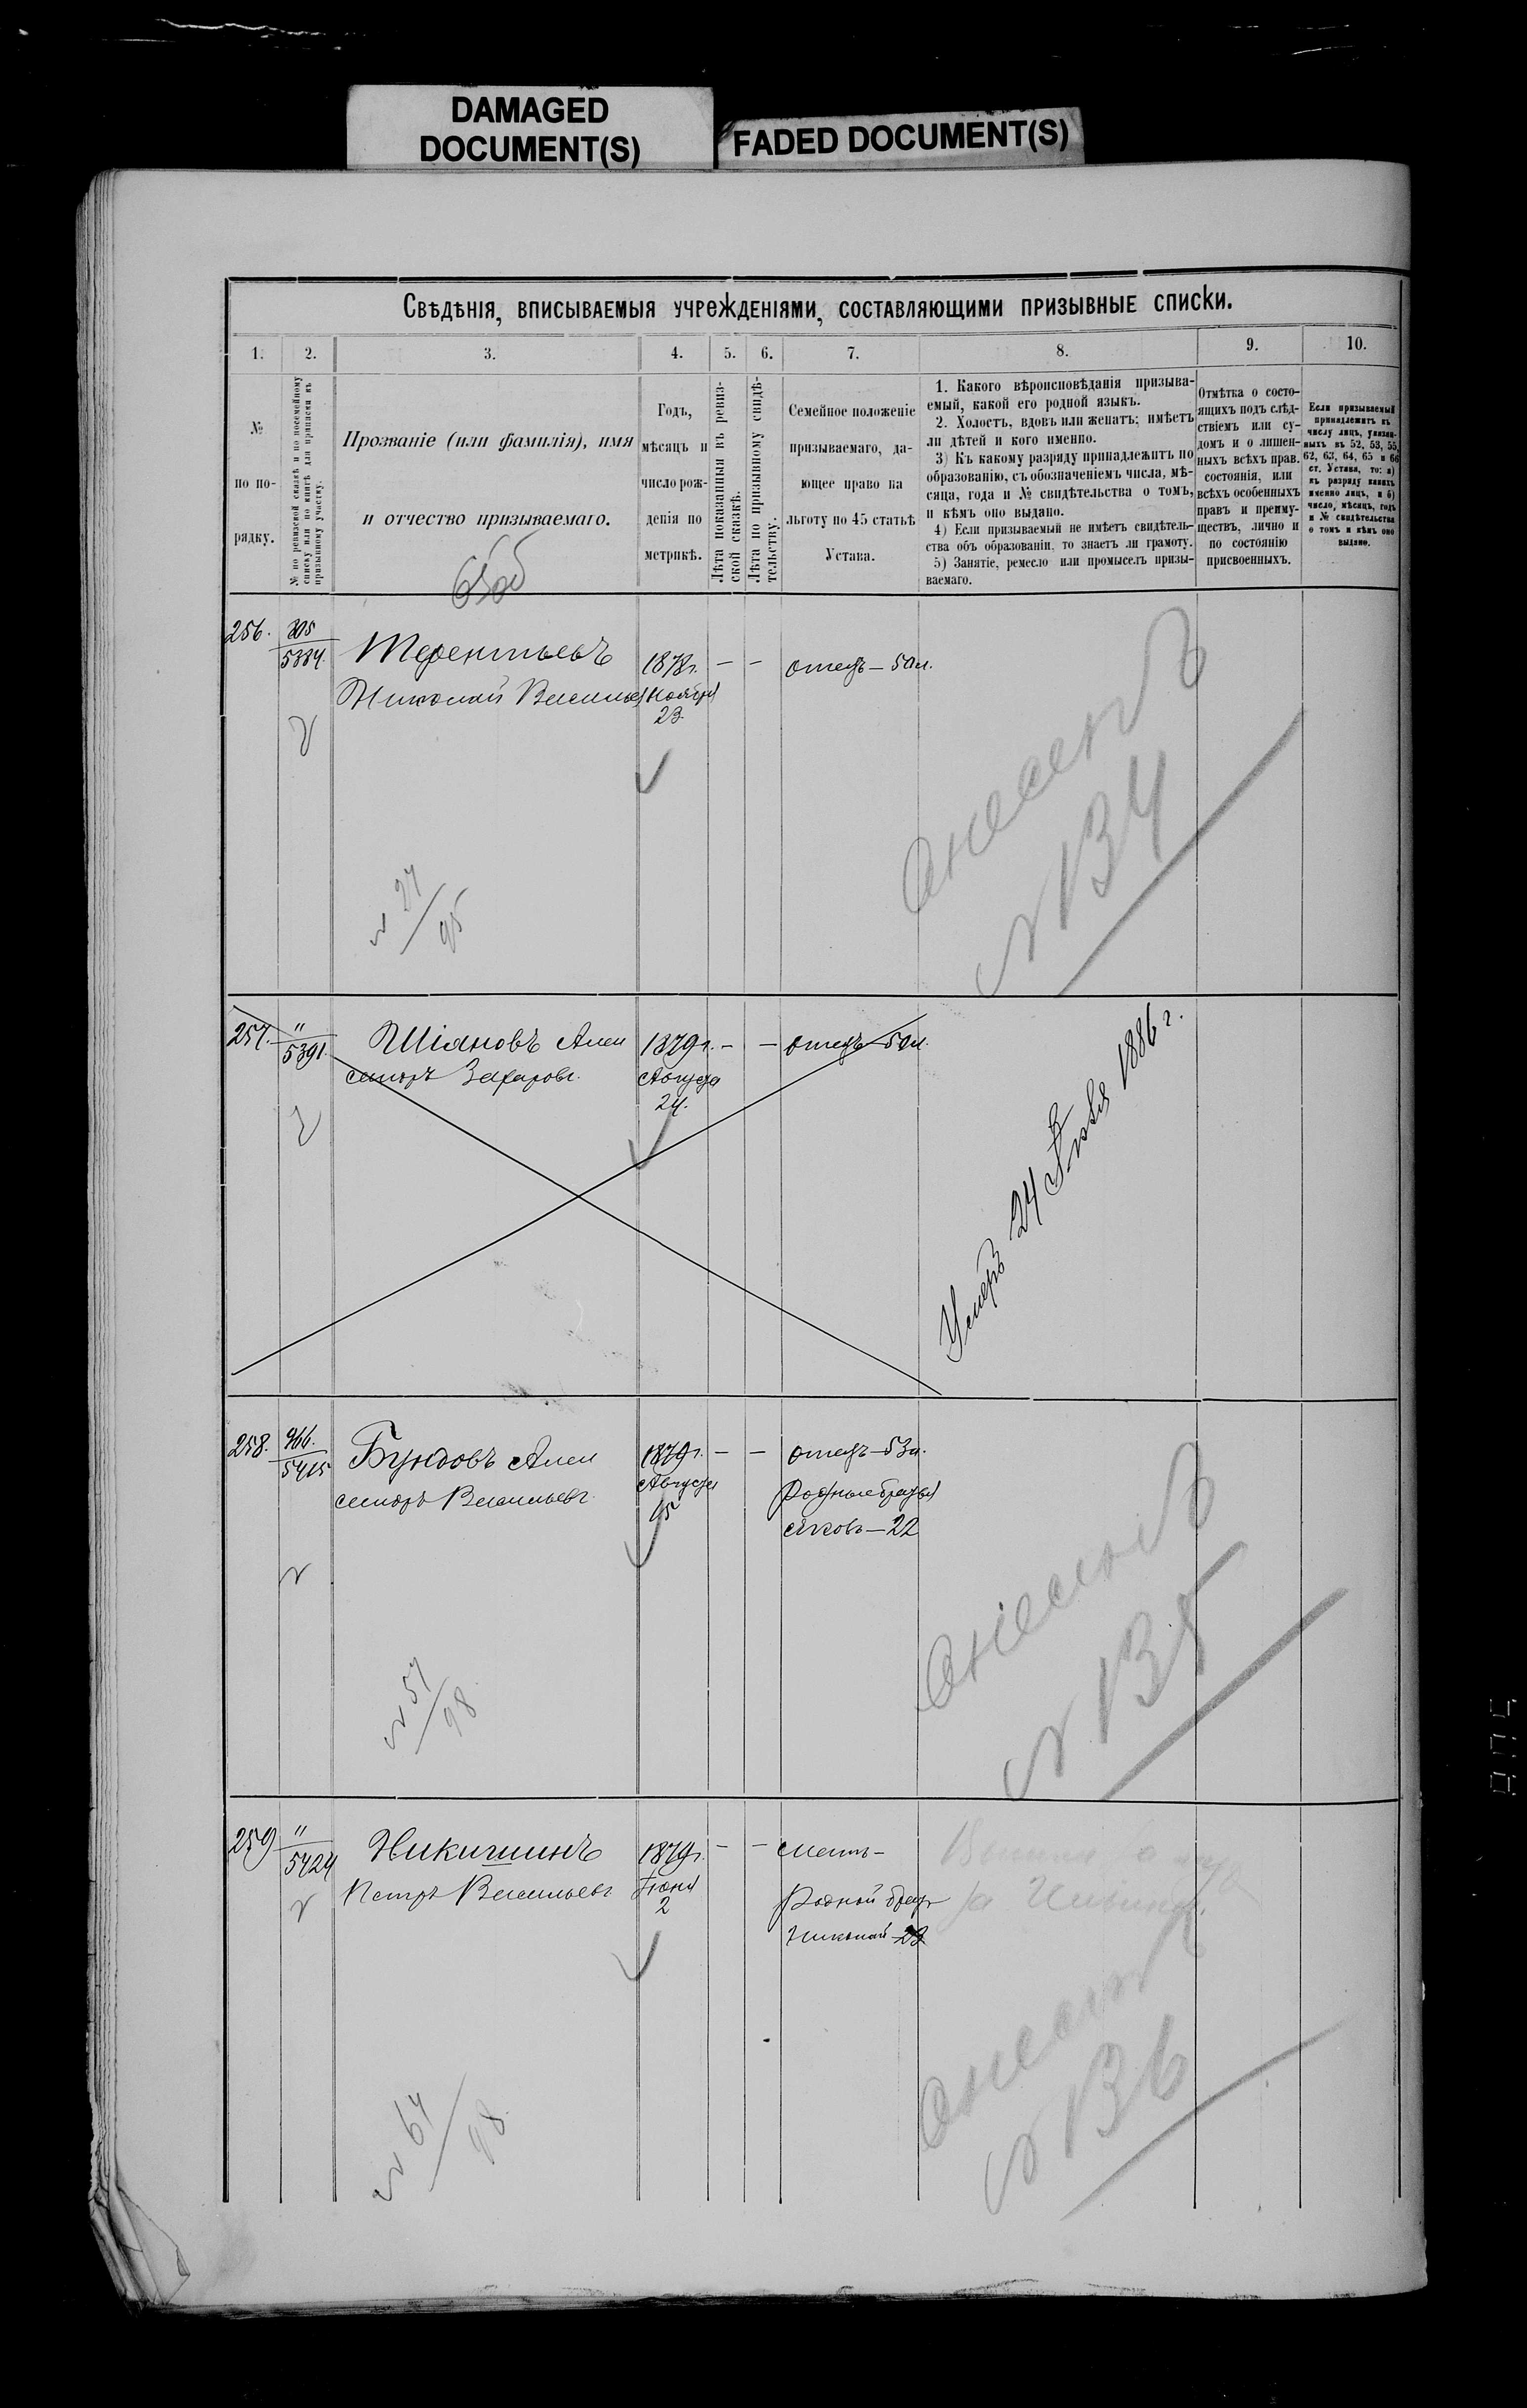 DAMAGED
DOCUMENT(S)
FADED DOCUMENT(S)
Свѣдѣнія, вписываемыя учрежденіями, составляющими призывные списки.
1.
2.
3.
4.
5.
6.
7.
8.
9.
10.
№
по по-
рядку.
№ по ревизской сказкѣ и по посемейному
списку или по книгѣ для приписки къ
призывному участку.
Прозваніе (или фамилія), имя
и отчество призываемаго.
Годъ,
мѣсяцъ и
число рож-
денія по
метрикѣ.
Лѣта показанныя въ ревиз-
ской сказкѣ.
Лѣта по призывному свидѣ-
тельству.
Семейное положеніе
призываемаго, да-
ющее право на
льготу по 45 статьѣ
Устава.
1. Какого вѣроисповѣданія призыва-
емый, какой его родной языкъ.
2. Холостъ, вдовъ или женатъ; имѣетъ
ли дѣтей и кого именно.
3) Къ какому разряду принадлежитъ по
образованію, съ обозначеніемъ числа, мѣ-
сяца, года и № свидѣтельства о томъ,
и кѣмъ оно выдано.
4) Если призываемый не имѣетъ свидѣтель-
ства объ образованіи, то знаетъ ли грамоту.
5) Занятіе, ремесло или промыселъ призы-
ваемаго.
Отмѣтка о состо-
ящихъ подъ слѣд-
ствіемъ или су-
домъ и о лишен-
ныхъ всѣхъ прав.
состоянія, или
всѣхъ особенныхъ
правъ и преиму-
ществъ, лично и
по состоянію
присвоенныхъ.
Если призываемый
принадлежитъ къ
числу лицъ, указан-
ныхъ въ 52, 53, 55,
62, 63, 64, 65 и 66
ст. Устава, то: а)
къ разряду какихъ
именно лицъ, и б)
число, мѣсяцъ, годъ
и № свидѣтельства
о томъ и кѣмъ оно
выдано.
256.
305
5384.
Терентьевъ
Николай Васильев
1878г.
Ноября
23.
— —
отецъ — 50л.
№ 27/95
№ 134
257.
"
5391.
Шіановъ Алек
сандръ Захаровъ
1879г.
Августа
24.
— —
отецъ — 50л.
Умеръ 24 1886 г.
258.
966.
5415
Бундовъ Алек
сандръ Васильевъ
1879г.
Августа
15
— —
отецъ — 53л.
Родные братья
Яковъ — 22
№ 57/98
№ 135
259
"
5424
Никишинъ
Петръ Васильевъ
1879г.
Іюня
2
— —
мать —
Родной братъ
Николай — 23
№ 64/98
№ 136